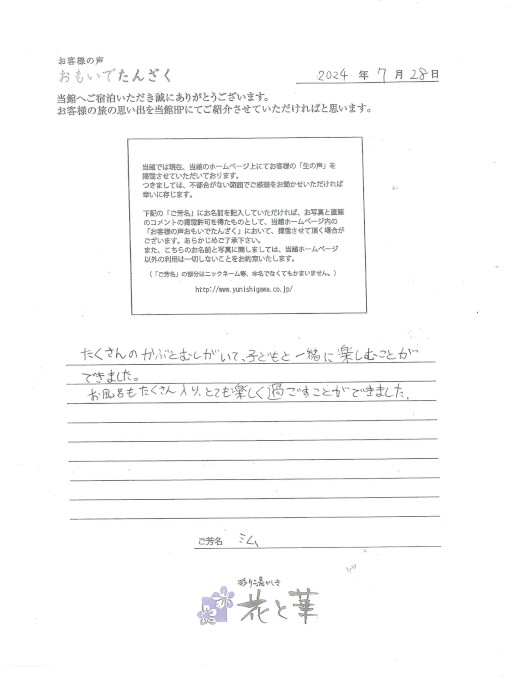 お客様の声
おもいでたんざく
2024 年 7 月 28 日
当館へご宿泊いただき誠にありがとうございます。
お客様の旅の思い出を当館HPにてご紹介させていただければと思います。
当館では現在、当館のホームページ上にてお客様の「生の声」を
掲載させていただいております。
つきましては、不都合がない範囲でご感想をお聞かせいただければ
幸いに存じます。
下記の「ご芳名」にお名前を記入していただければ、お写真と直筆
のコメントの掲載許可を得たものとして、当館ホームページ内の
「お客様の声おもいでたんざく」において、掲載させて頂く場合が
ございます。あらかじめご了承下さい。
また、こちらのお名前と写真に関しましては、当館ホームページ
以外の利用は一切しないことをお約束いたします。
(「ご芳名」の部分はニックネーム等、本名でなくてもかまいません。)
http://www.yunishigawa.co.jp/
たくさんのかぶとむしがいて、子どもと一緒に楽しむことが
できました。
お風呂もたくさん入り、とても楽しく過ごすことができました。
ご芳名 ミム
彩り湯かしき
花と華